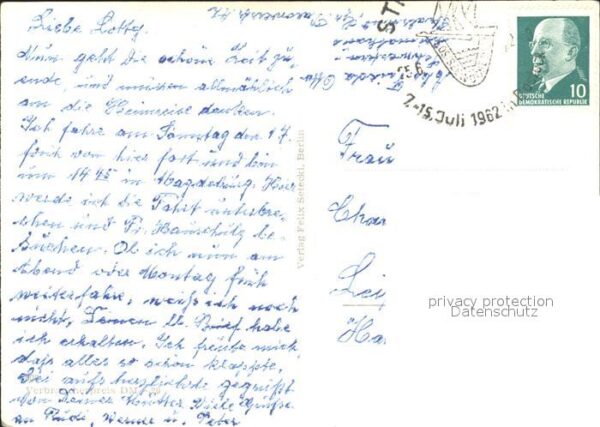 Liebe Lotty.
Nun geht die schöne Zeit zu
ende, und müssen allmählich
an die Heimreise denken.
Ich fahre am Sonntag den 1.7.
früh von hier fort und bin
um 14 45 in Magdeburg. Hier
werde ich die Fahrt unterbre-
chen und Fr. be-
suchen. Ob ich nun am
Abend oder Montag früh
weiterfahre, weiß ich noch
nicht, Deinen lb. Brief habe
ich erhalten. Ich freute mich,
daß alles so schön klappte,
Sei aufs herzlichste gegrüßt
von Deiner Mutter Viele Grüße
an Rudi, Werner u. Peter
Verlag Felix Setecki, Berlin
Verbraucherpreis DM
7.-15. Juli 1962
DEUTSCHE
DEMOKRATISCHE REPUBLIK
10
Frau
Char
Leip
Ha
privacy protection
Datenschutz